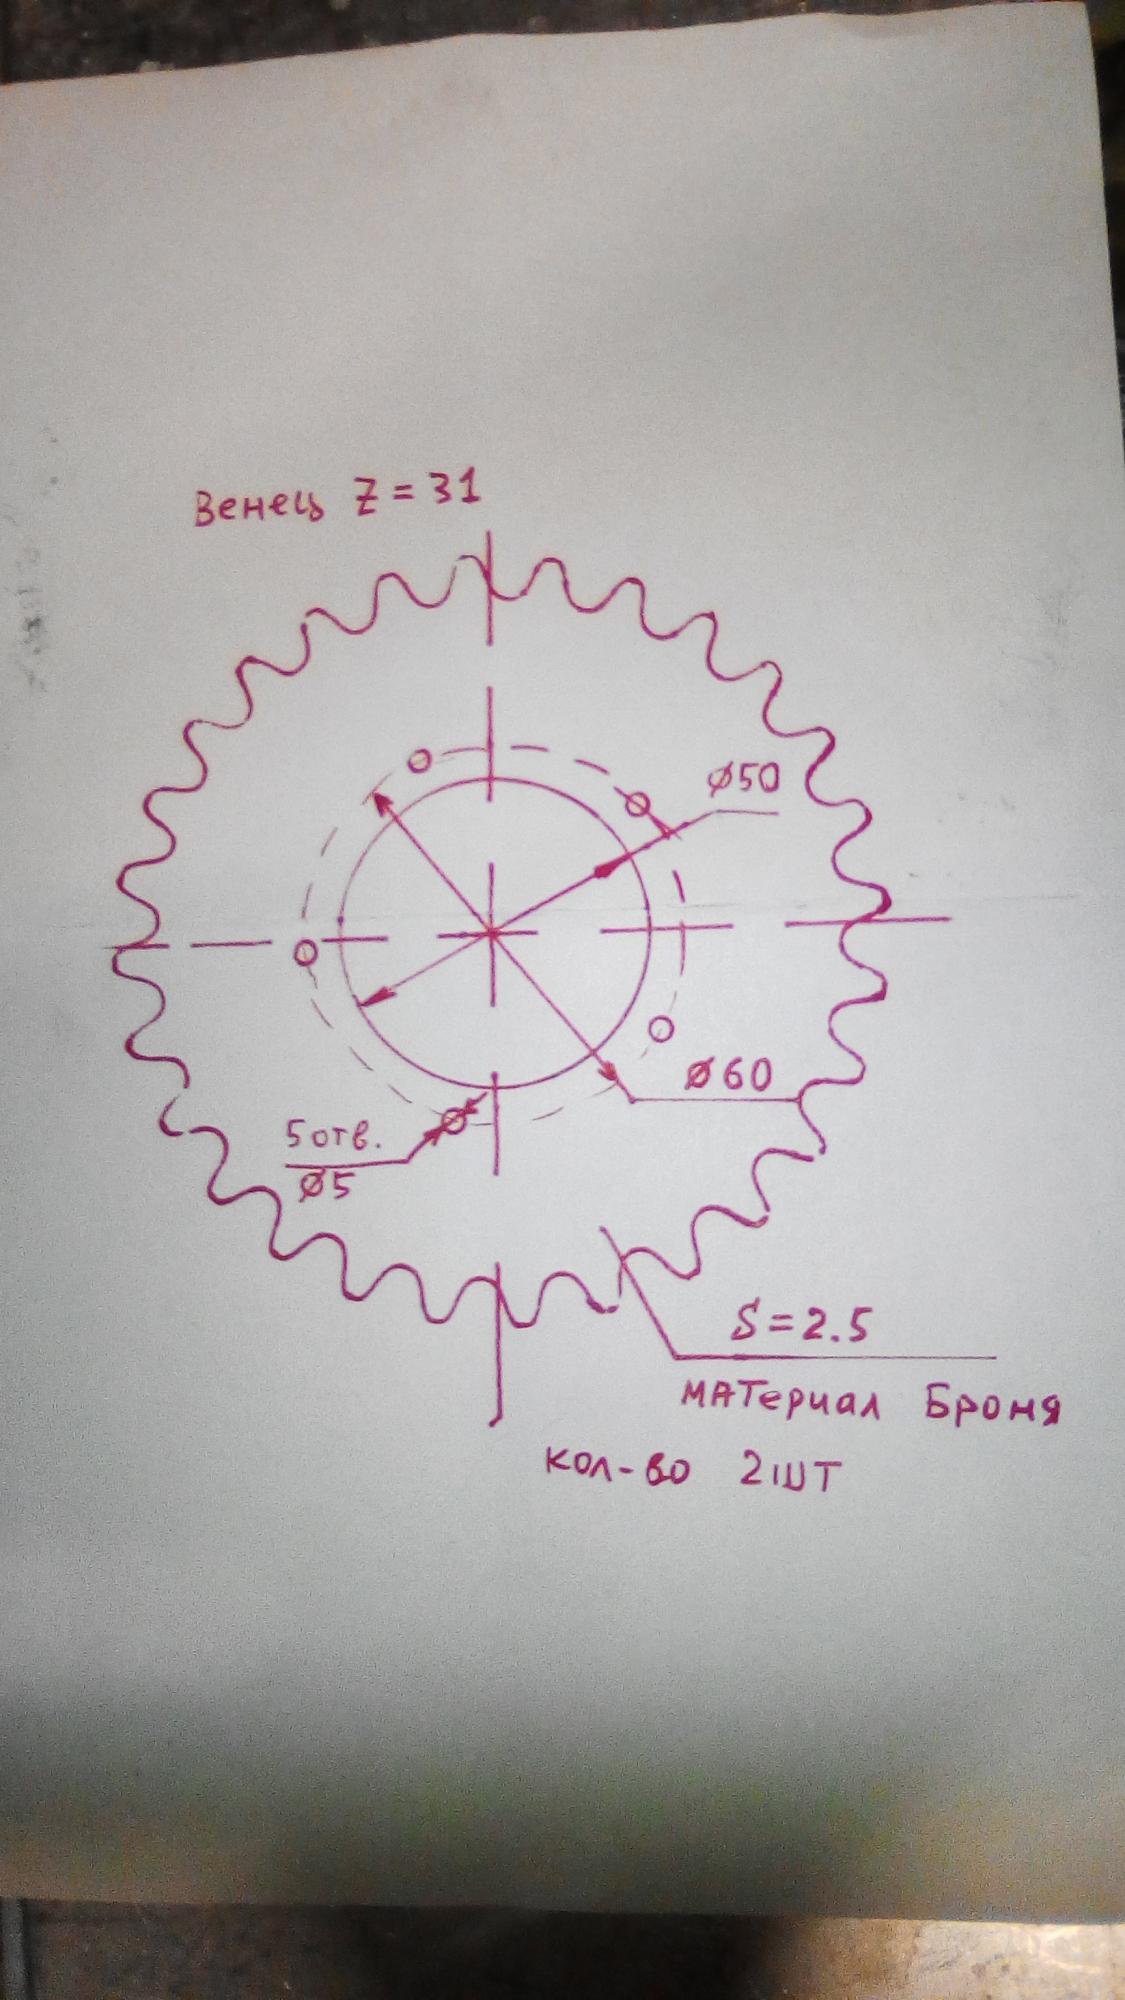 Венец Z=31
ø50
ø60
5 отв.
ø5
S=2.5
материал Броня
кол-во 2шт